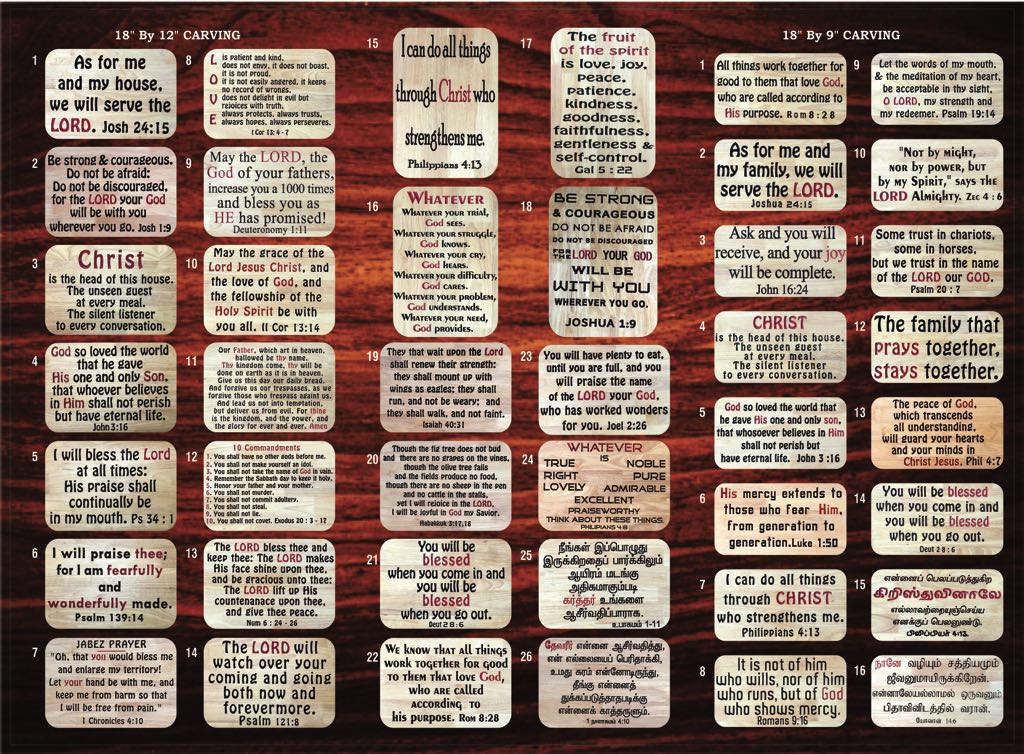 18" By 12" CARVING
1
As for me
and my house,
we will serve the
LORD. Josh 24:15
2
Be strong & courageous.
Do not be afraid:
Do not be discouraged,
for the LORD your God
will be with you
wherever you go. Josh 1:9
3
Christ
is the head of this house.
The unseen guest
at every meal.
The silent listener
to every conversation.
4
God so loved the world
that he gave
His one and only Son,
that whoever believes
in Him shall not perish
but have eternal life.
John 3:16
5
I will bless the Lord
at all times:
His praise shall
continually be
in my mouth. Ps 34 : 1
6
I will praise thee;
for I am fearfully
and
wonderfully made.
Psalm 139:14
7
JABEZ PRAYER
"Oh, that you would bless me
and enlarge my territory!
Let your hand be with me, and
keep me from harm so that
I will be free from pain."
1 Chronicles 4:10
8
LOVE
is patient and kind,
does not envy, it does not boast,
it is not proud,
it is not easily angered, it keeps
no record of wrongs.
does not delight in evil but
rejoices with truth.
always protects, always trusts,
always hopes, always perseveres.
1 Cor 13: 4 - 7
9
May the LORD, the
God of your fathers,
increase you a 1000 times
and bless you as
HE has promised!
Deuteronomy 1:11
10
May the grace of the
Lord Jesus Christ, and
the love of God, and
the fellowship of the
Holy Spirit be with
you all. II Cor 13:14
11
Our Father, which art in heaven,
hallowed be thy name.
Thy kingdom come, thy will be
done on earth as it is in heaven.
Give us this day our daily bread.
And forgive us our trespasses, as we
forgive those who trespass against us.
And lead us not into temptation,
but deliver us from evil. For thine
is the kingdom, and the power, and
the glory for ever and ever. Amen
12
10 Commandments
1. You shall have no other gods before me.
2. You shall not make yourself an idol.
3. You shall not take the name of God in vain.
4. Remember the Sabbath day to keep it holy.
5. Honor your father and your mother.
6. You shall not murder.
7. You shall not commit adultery.
8. You shall not steal.
9. You shall not lie.
10. You shall not covet. Exodus 20 : 3 - 17
13
The LORD bless thee and
keep thee: The LORD makes
His face shine upon thee,
and be gracious unto thee:
The LORD lift up His
countenance upon thee,
and give thee peace.
Num 6 : 24 - 26
14
The LORD will
watch over your
coming and going
both now and
forevermore.
Psalm 121:8
15
I can do all things
through Christ who
strengthens me.
Philippians 4:13
16
WHATEVER
WHATEVER YOUR TRIAL,
GOD SEES.
WHATEVER YOUR STRUGGLE,
GOD KNOWS.
WHATEVER YOUR CRY,
GOD HEARS.
WHATEVER YOUR DIFFICULTY,
GOD CARES.
WHATEVER YOUR PROBLEM,
GOD UNDERSTANDS.
WHATEVER YOUR NEED,
GOD PROVIDES.
17
The fruit
of the spirit
is love, joy,
peace,
patience,
kindness,
goodness,
faithfulness,
gentleness &
self-control.
Gal 5 : 22
18
BE STRONG
& COURAGEOUS
DO NOT BE AFRAID
DO NOT BE DISCOURAGED
FOR THE LORD YOUR GOD
WILL BE
WITH YOU
WHEREVER YOU GO.
JOSHUA 1:9
19
They that wait upon the Lord
shall renew their strength:
they shall mount up with
wings as eagles; they shall
run, and not be weary; and
they shall walk, and not faint.
Isaiah 40:31
20
Though the fig tree does not bud
and there are no grapes on the vines,
though the olive tree fails
and the fields produce no food,
though there are no sheep in the pen
and no cattle in the stalls,
yet I will rejoice in the LORD,
I will be joyful in God my Savior.
Habakkuk 3:17,18
21
You will be
blessed
when you come in and
you will be
blessed
when you go out.
Deut 28 : 6
22
WE KNOW THAT ALL THINGS
WORK TOGETHER FOR GOOD
TO THEM THAT LOVE GOD,
WHO ARE CALLED
ACCORDING TO
HIS PURPOSE. ROM 8:28
23
You will have plenty to eat,
until you are full, and you
will praise the name
of the LORD your God,
who has worked wonders
for you. Joel 2:26
24
WHATEVER
IS
TRUE NOBLE
RIGHT PURE
LOVELY ADMIRABLE
EXCELLENT
PRAISEWORTHY
THINK ABOUT THESE THINGS.
PHILIPPIANS 4:8
25
நீங்கள் இப்பொழுது
இருக்கிறதைப் பார்க்கிலும்
ஆயிரம் மடங்கு
அதிகமாகும்படி
கர்த்தர் உங்களை
ஆசீர்வதிப்பாராக.
உபாகமம் 1-11
26
தேவரீர் என்னை ஆசீர்வதித்து,
என் எல்லையைப் பெரிதாக்கி,
உமது கரம் என்னோடிருந்து,
தீங்கு என்னைத்
துக்கப்படுத்தாதபடிக்கு
என்னைக் காத்தருளும்.
1 நாளாகமம் 4:10
18" By 9" CARVING
1
All things work together for
good to them that love God,
who are called according to
His purpose. Rom 8 : 28
2
As for me and
my family, we will
serve the LORD.
Joshua 24:15
3
Ask and you will
receive, and your joy
will be complete.
John 16:24
4
CHRIST
is the head of this house,
The unseen guest
at every meal.
The silent listener
to every conversation.
5
God so loved the world that
he gave His one and only son,
that whosoever believes in Him
shall not perish but
have eternal life. John 3 :16
6
His mercy extends to
those who fear Him,
from generation to
generation.Luke 1:50
7
I can do all things
through CHRIST
who strengthens me.
Philippians 4:13
8
It is not of him
who wills, nor of him
who runs, but of God
who shows mercy.
Romans 9:16
9
Let the words of my mouth,
& the meditation of my heart,
be acceptable in thy sight,
O LORD, my strength and
my redeemer. Psalm 19:14
10
"Not by might,
nor by power, but
by my Spirit," says the
LORD Almighty. Zec 4 : 6
11
Some trust in chariots,
some in horses,
but we trust in the name
of the LORD our GOD.
Psalm 20 : 7
12
The family that
prays together,
stays together.
13
The peace of God,
which transcends
all understanding,
will guard your hearts
and your minds in
Christ Jesus. Phil 4:7
14
You will be blessed
when you come in and
you will be blessed
when you go out.
Deut 28 : 6
15
என்னைப் பெலப்படுத்துகிற
கிறிஸ்துவினாலே
எல்லாவற்றையுஞ்செய்ய
எனக்குப் பெலனுண்டு.
பிலிப்பியர் 4:13.
16
நானே வழியும் சத்தியமும்
ஜீவனுமாயிருக்கிறேன்,
என்னாலேயல்லாமல் ஒருவனும்
பிதாவினிடத்தில் வரான்.
யோவான் 14:6